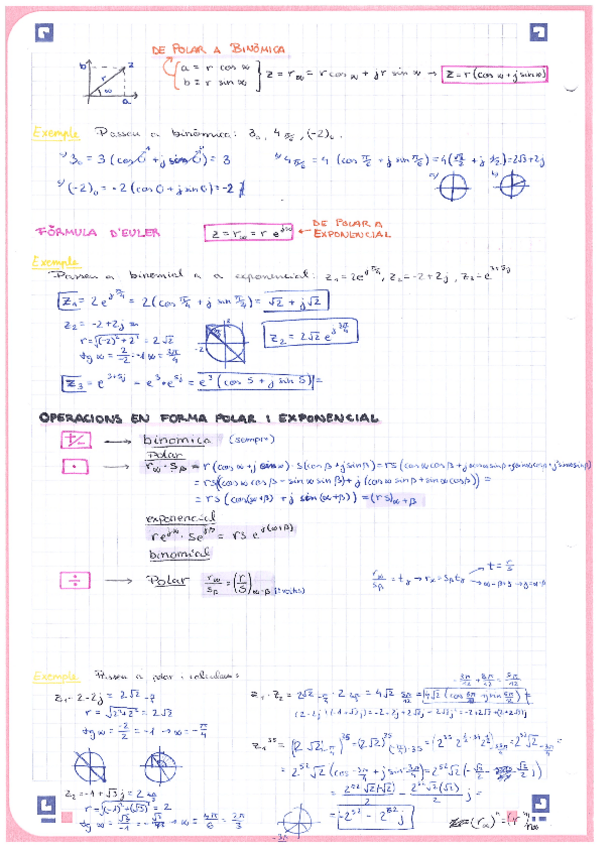 DE POLAR A BINÒMICA
b z r α a
a = r cos α
b = r sin α
z = r_α = r cos α + j r sin α → z = r (cos α + j sin α)
Exemple Passeu a binòmica: 3₀, 4_π/6, (-2)₀.
3₀ = 3 (cos 0 + j sin 0) = 3
4_π/6 = 4 (cos π/6 + j sin π/6) = 4 (√3/2 + j 1/2) = 2√3 + 2j
(-2)₀ = -2 (cos 0 + j sin 0) = -2
FÓRMULA D'EULER z = r_α = r e^jα ← DE POLAR A EXPONENCIAL
Exemple
Passeu a binomial o a exponencial: z₁ = 2e^jπ/4, z₂ = -2+2j, z₃ = e^3+5j
z₁ = 2e^jπ/4 = 2 (cos π/4 + j sin π/4) = √2 + j√2
z₂ = -2 + 2j
r = √(-2)²+2² = 2√2
tg α = 2/-2 = -1 α = 3π/4
z₂ = 2√2 e^j3π/4
z₃ = e^3+5j = e³ · e^5j = e³ (cos 5 + j sin 5)
OPERACIONS EN FORMA POLAR I EXPONENCIAL
+/- → binomica (sempre)
· → Polar
r_α · s_β = r (cos α + j sin α) · s (cos β + j sin β) = rs (cos α cos β + j cos α sin β + j sin α cos β + j² sin α sin β)
= rs (cos α cos β - sin α sin β) + j (cos α sin β + sin α cos β) =
= rs (cos (α+β) + j sin (α+β)) = (rs)_α+β
exponencial
r e^jα · s e^jβ = rs e^j(α+β)
binomial
÷ → Polar r_α / s_β = (r/s)_α-β
r_α / s_β = t_γ → r_α = s_β t_γ → t = r/s
→ α = β + γ → γ = α - β
Exemple Passeu a polar i calculeu:
z₁ = 2 - 2j = 2√2 _-π/4
r = √2²+2² = 2√2
tg α = -2/2 = -1 → α = -π/4
z₂ = -1 + √3 j = 2
r = √(-1)²+(√3)² = 2
tg α = √3/-1 = -√3 → α = 4π/6 = 2π/3
z₁ · z₂ = 2√2 _-π/4 · 2 = 4√2 _5π/12 = 4√2 (cos 5π/12 + j sin 5π/12) =
(2-2j)(-1+√3j) = -2 + 2j + 2√3j - 2√3j² = -2+2√3 + (2+2√3)j
z₁³⁵ = (2√2 _-π/4)³⁵ = (2√2)³⁵
= 2⁵² √2 (cos -3π/4 + j sin -3π/4) = 2⁵² √2 (-√2/2 - √2/2 j) =
= -2⁵² - 2⁵² j
(r_α)ⁿ = (rⁿ)_nα